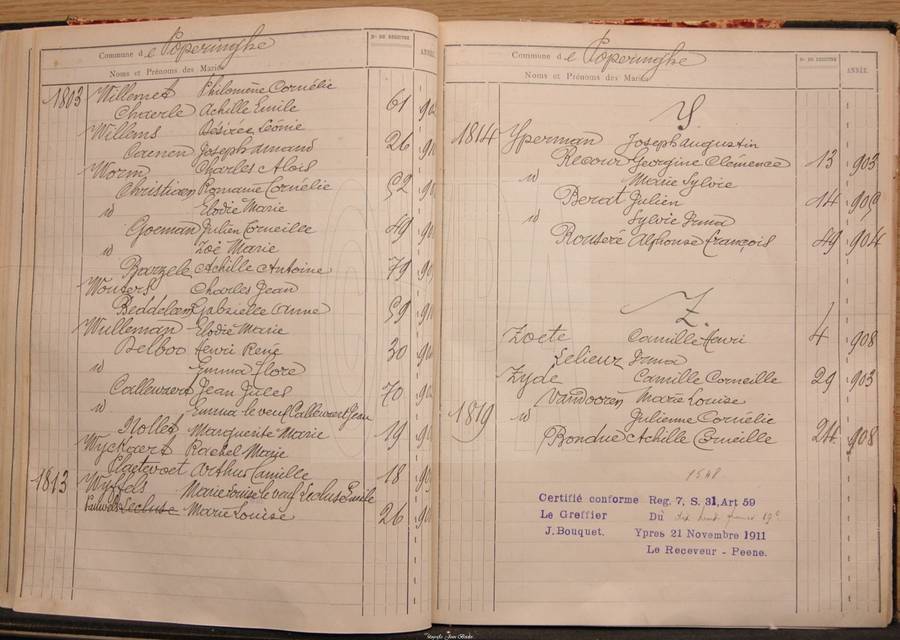 Commune de Poperinghe
Nos DE REGISTRE
ANNÉE
Noms et Prénoms des Mariés
1803 Willemet Philomène Cornélie
Charle Achille Emile 61
Willams Désirée Léonie
Caenen Joseph Amand 26
Worm Charles Aloïs
Christiaen Romanie Cornélie 52
id Elodie Marie
Goeman Julien Corneille 49
id Zoé Marie
Barzele Achille Antoine 79
Wouters Charles Jean
Beddeleem Gabrielle Anne 59
Wulleman Elodie Marie
Delboo Henri René 30
id Emma Flore
Callewaert Jean Jules 70
id Emma le veuf Callewaert Jean
Nollet Marguerite Marie 19
Wyckaert Rachel Marie
Plaetvoet Arthur Camille 18
1813 Wyffels Marie Louise le veuf Lecluse Emile
Lecluse Marie Louise 26
Commune de Poperinghe
Nos DE REGISTRE
ANNÉE.
Noms et Prénoms des Mariés
Y.
1814 Yperman Joseph Augustin
Recour Georgine Clémence 13 903
id Marie Sylvie
Berat Julien 14 909
id Sylvie Irma
Rouseré Alphonse François 49 904
Z.
Zoete Camille Henri 4 908
Lelieur Irma
Zyde Camille Corneille 29 903
Vandooren Marie Louise
1819 id Julienne Cornélie
Bondue Achille Corneille 24 908
1548
Certifié conforme Reg. 7, S. 31, Art 59
Le Greffier Du
J. Bouquet. Ypres 21 Novembre 1911
Le Receveur - Peene.